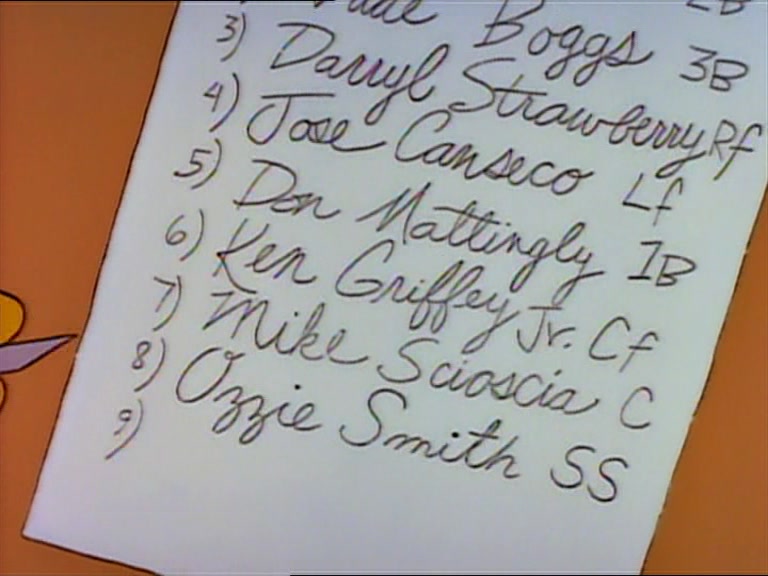 2B
Wade Boggs 3B
3) Darryl Strawberry Rf
4) Jose Canseco Lf
5) Don Mattingly 1B
6) Ken Griffey Jr. Cf
7) Mike Scioscia C
8) Ozzie Smith SS
9)